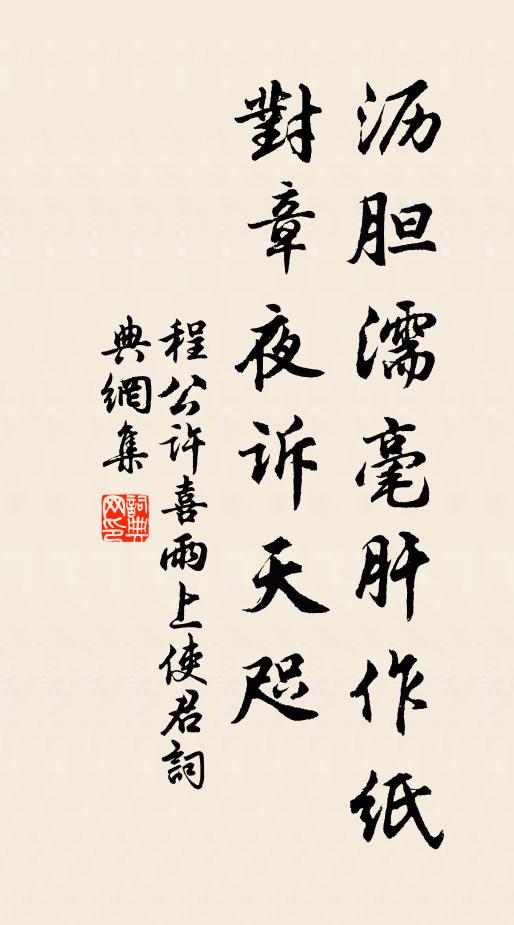 沥胆濡毫肝作纸
對章夜诉天咫
程公许喜雨上使君詞
典網集
詞典網印